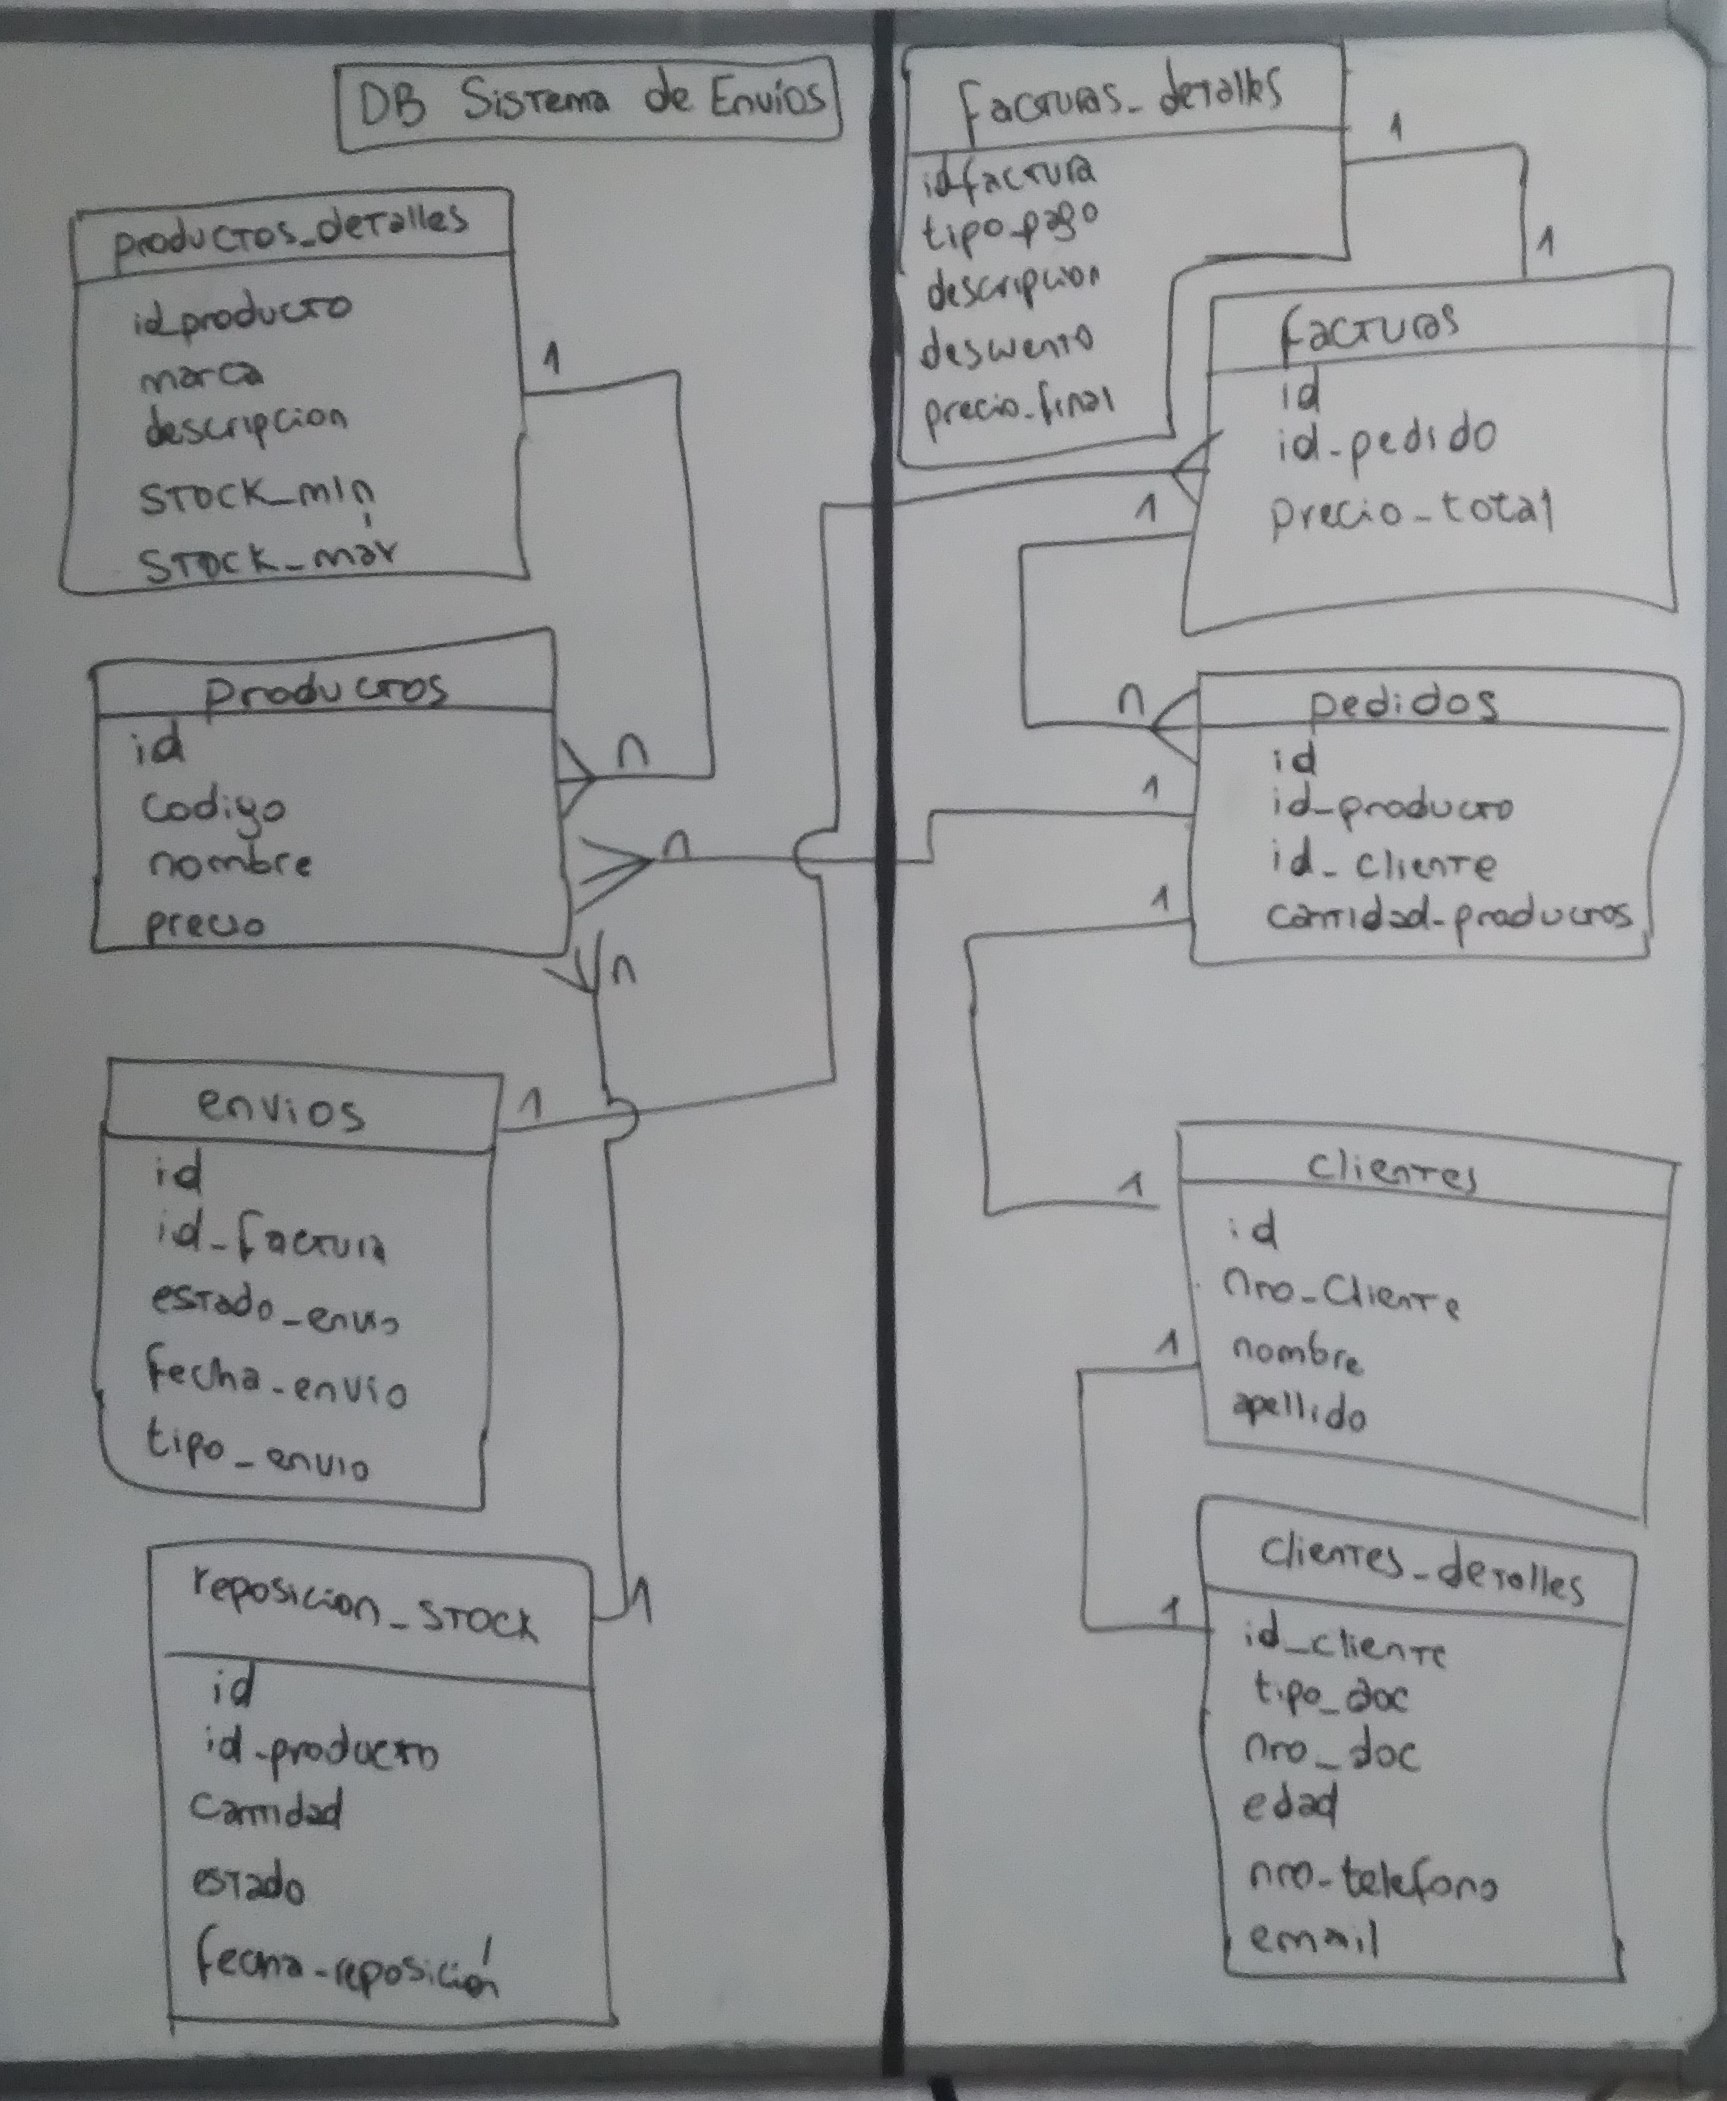 DB Sistema de Envíos
productos_detalles
id_producto
marca
descripcion
STOCK_min
STOCK_máx
1
productos
id
codigo
nombre
precio
n
n
n
envios
1
id
id_factura
estado_envio
fecha_envio
tipo_envio
reposicion_STOCK
1
id
id_producto
cantidad
estado
fecha_reposición
facturas_detalles
1
id_factura
tipo_pago
descripcion
descuento
precio_final
1
facturas
id
id_pedido
precio_total
1
n
pedidos
id
1
id_producto
id_cliente
1
cantidad_productos
clientes
1
id
nro_Cliente
nombre
1
apellido
clientes_detalles
1
id_cliente
tipo_doc
nro_doc
edad
nro_telefono
email